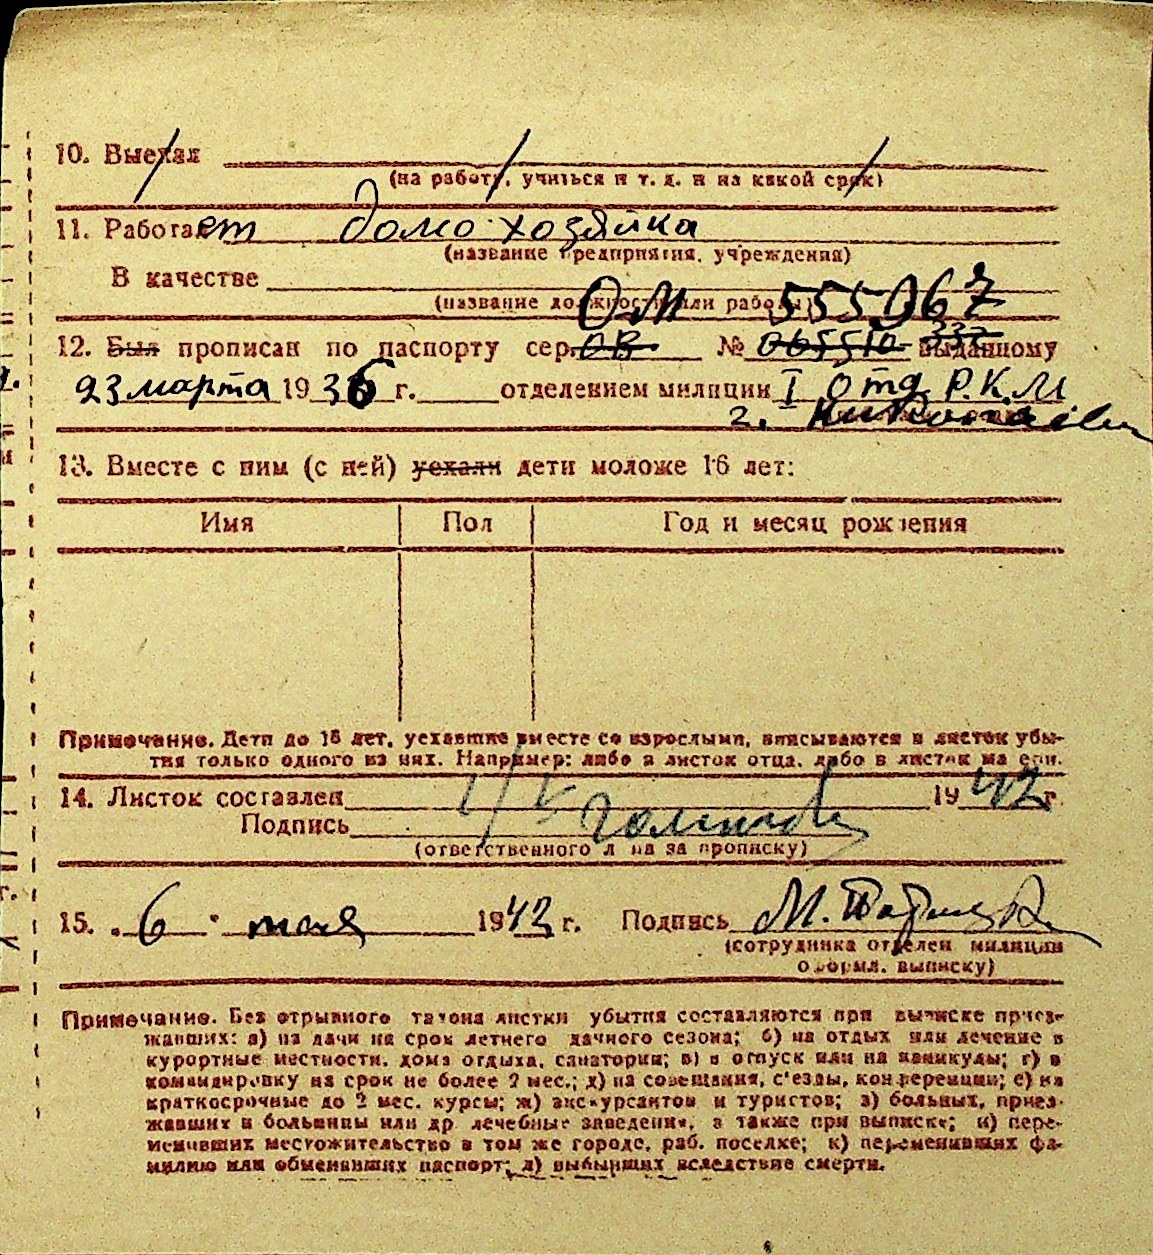 10. Выехал
(на работу, учиться и т. д. и на какой срок)
11. Работает домохозяйка
(название предприятия, учреждения)
В качестве
(название должности или работы)
ОМ 555967
12. Был прописан по паспорту сер. ОВ № 065510 337 выданному
23 марта 1936 г. отделением милиции I отд Р.К.М
г. Николаев
13. Вместе с ним (с ней) уехали дети моложе 16 лет:
Имя Пол Год и месяц рождения
Примечание. Дети до 16 лет, уехавшие вместе со взрослыми, вписываются в листок убы-
тия только одного из них. Например: либо в листок отца, либо в листок матери.
14. Листок составлен 1942 г.
Подпись
(ответственного лица за прописку)
15. „6" мая 1942 г. Подпись М.
(сотрудника отделен милиции
оформл. выписку)
Примечание. Без отрывного талона листки убытия составляются при выписке приез-
жавших: а) на дачи на срок летнего дачного сезона; б) на отдых или лечение в
курортные местности, дома отдыха, санатории; в) в отпуск или на каникулы; г) в
командировку на срок не более 2 мес.; д) на совещания, с'езды, конференции; е) на
краткосрочные до 2 мес. курсы; ж) экскурсантов и туристов; з) больных, приез-
жавших в больницы или др лечебные заведения, а также при выписке; и) пере-
менивших местожительство в том же городе, раб. поселке; к) переменивших фа-
милию или обменявших паспорт; л) выбывших вследствие смерти.